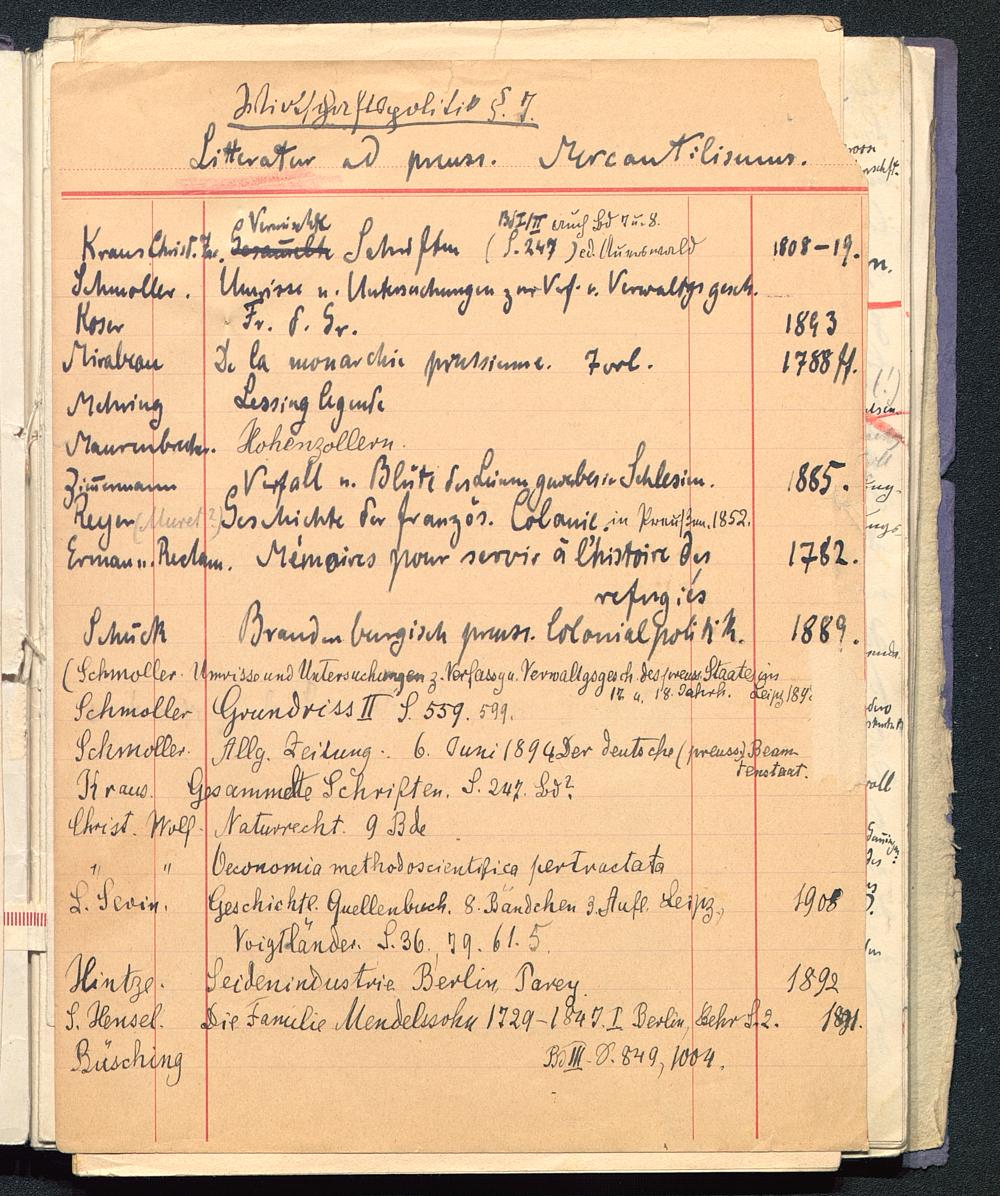 Wirtschaftspolitik §. 7.
Litteratur ad preuss. Mercantilismus.
Vermischte Bd I/II auch Bd 7 u. 8.
Kraus Christ. Jac. Gesammelte Schriften (S. 247) ed. Auerswald 1808–19.
Schmoller. Umrisse u. Untersuchungen zur Verf. u. Verwaltgs gesch.
Koser Fr. d. Gr. 1893
Mirabeau De la monarchie prussienne. 7 vol. 1788 ff.
Mehring Lessinglegende
Maurenbrecher. Hohenzollern.
Zimmermann Verfall u. Blüte des Leinengewerbes in Schlesien. 1885.
Reyer (Muret?) Geschichte der französ. Colonie in Preußen. 1852.
Erman u. Reclam. Mémoires pour servir à l'histoire des 1782.
refugiés
Schück Brandenburgisch preuss. Colonialpolitik. 1889.
(Schmoller. Umrisse und Untersuchungen z. Verfassg u. Verwaltgsgesch. des preuss. Staates im
17. u. 18. Jahrh. Leipz 189
Schmoller Grundriss II S. 559. 599.
Schmoller. Allg. Zeitung. 6. Juni 1894 Der deutsche (preuss.) Beam
tenstaat.
Kraus. Gesammelte Schriften. S. 247. Bd?
Christ. Wolf. Naturrecht. 9 Bde
" " Oeconomia methodo scientifica pertractata
L. Sevin. Geschichtl. Quellenbuch. 8. Bändchen 3. Aufl. Leipz, 1908
Voigtländer. S. 36, 79. 61. 5.
Hintze. Seidenindustrie Berlin, Parey 1892
S. Hensel. Die Familie Mendelssohn 1729–1847. I Berlin, Behr S. 2. 1891.
Büsching Bd III. S. 849, 1004.